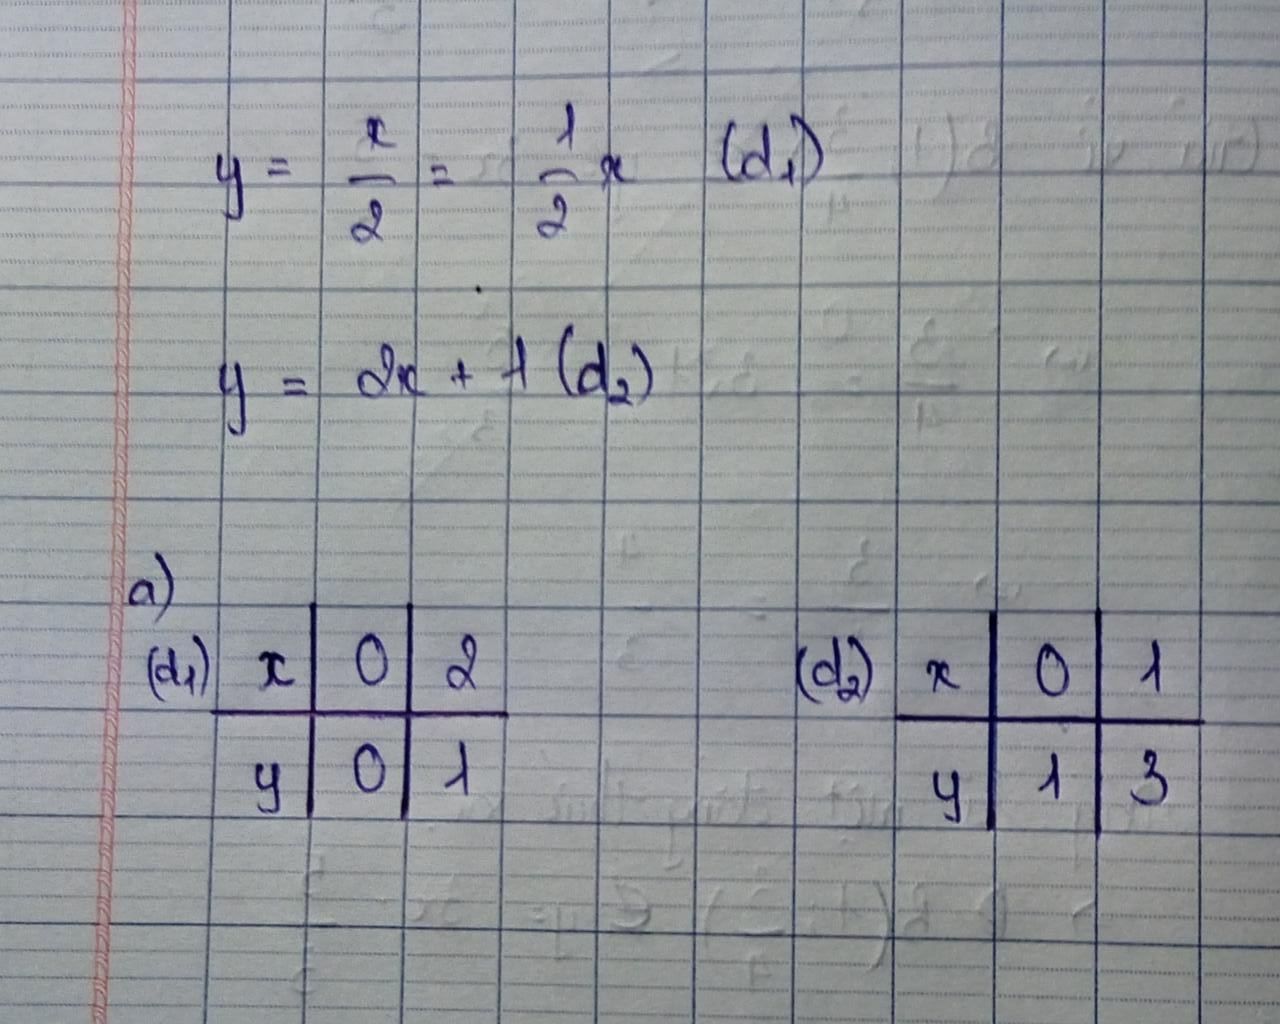 y = x/2 = 1/2 x (d1)
y = 2x + 1 (d2)
a)
(d1) x 0 2
y 0 1
(d2) x 0 1
y 1 3